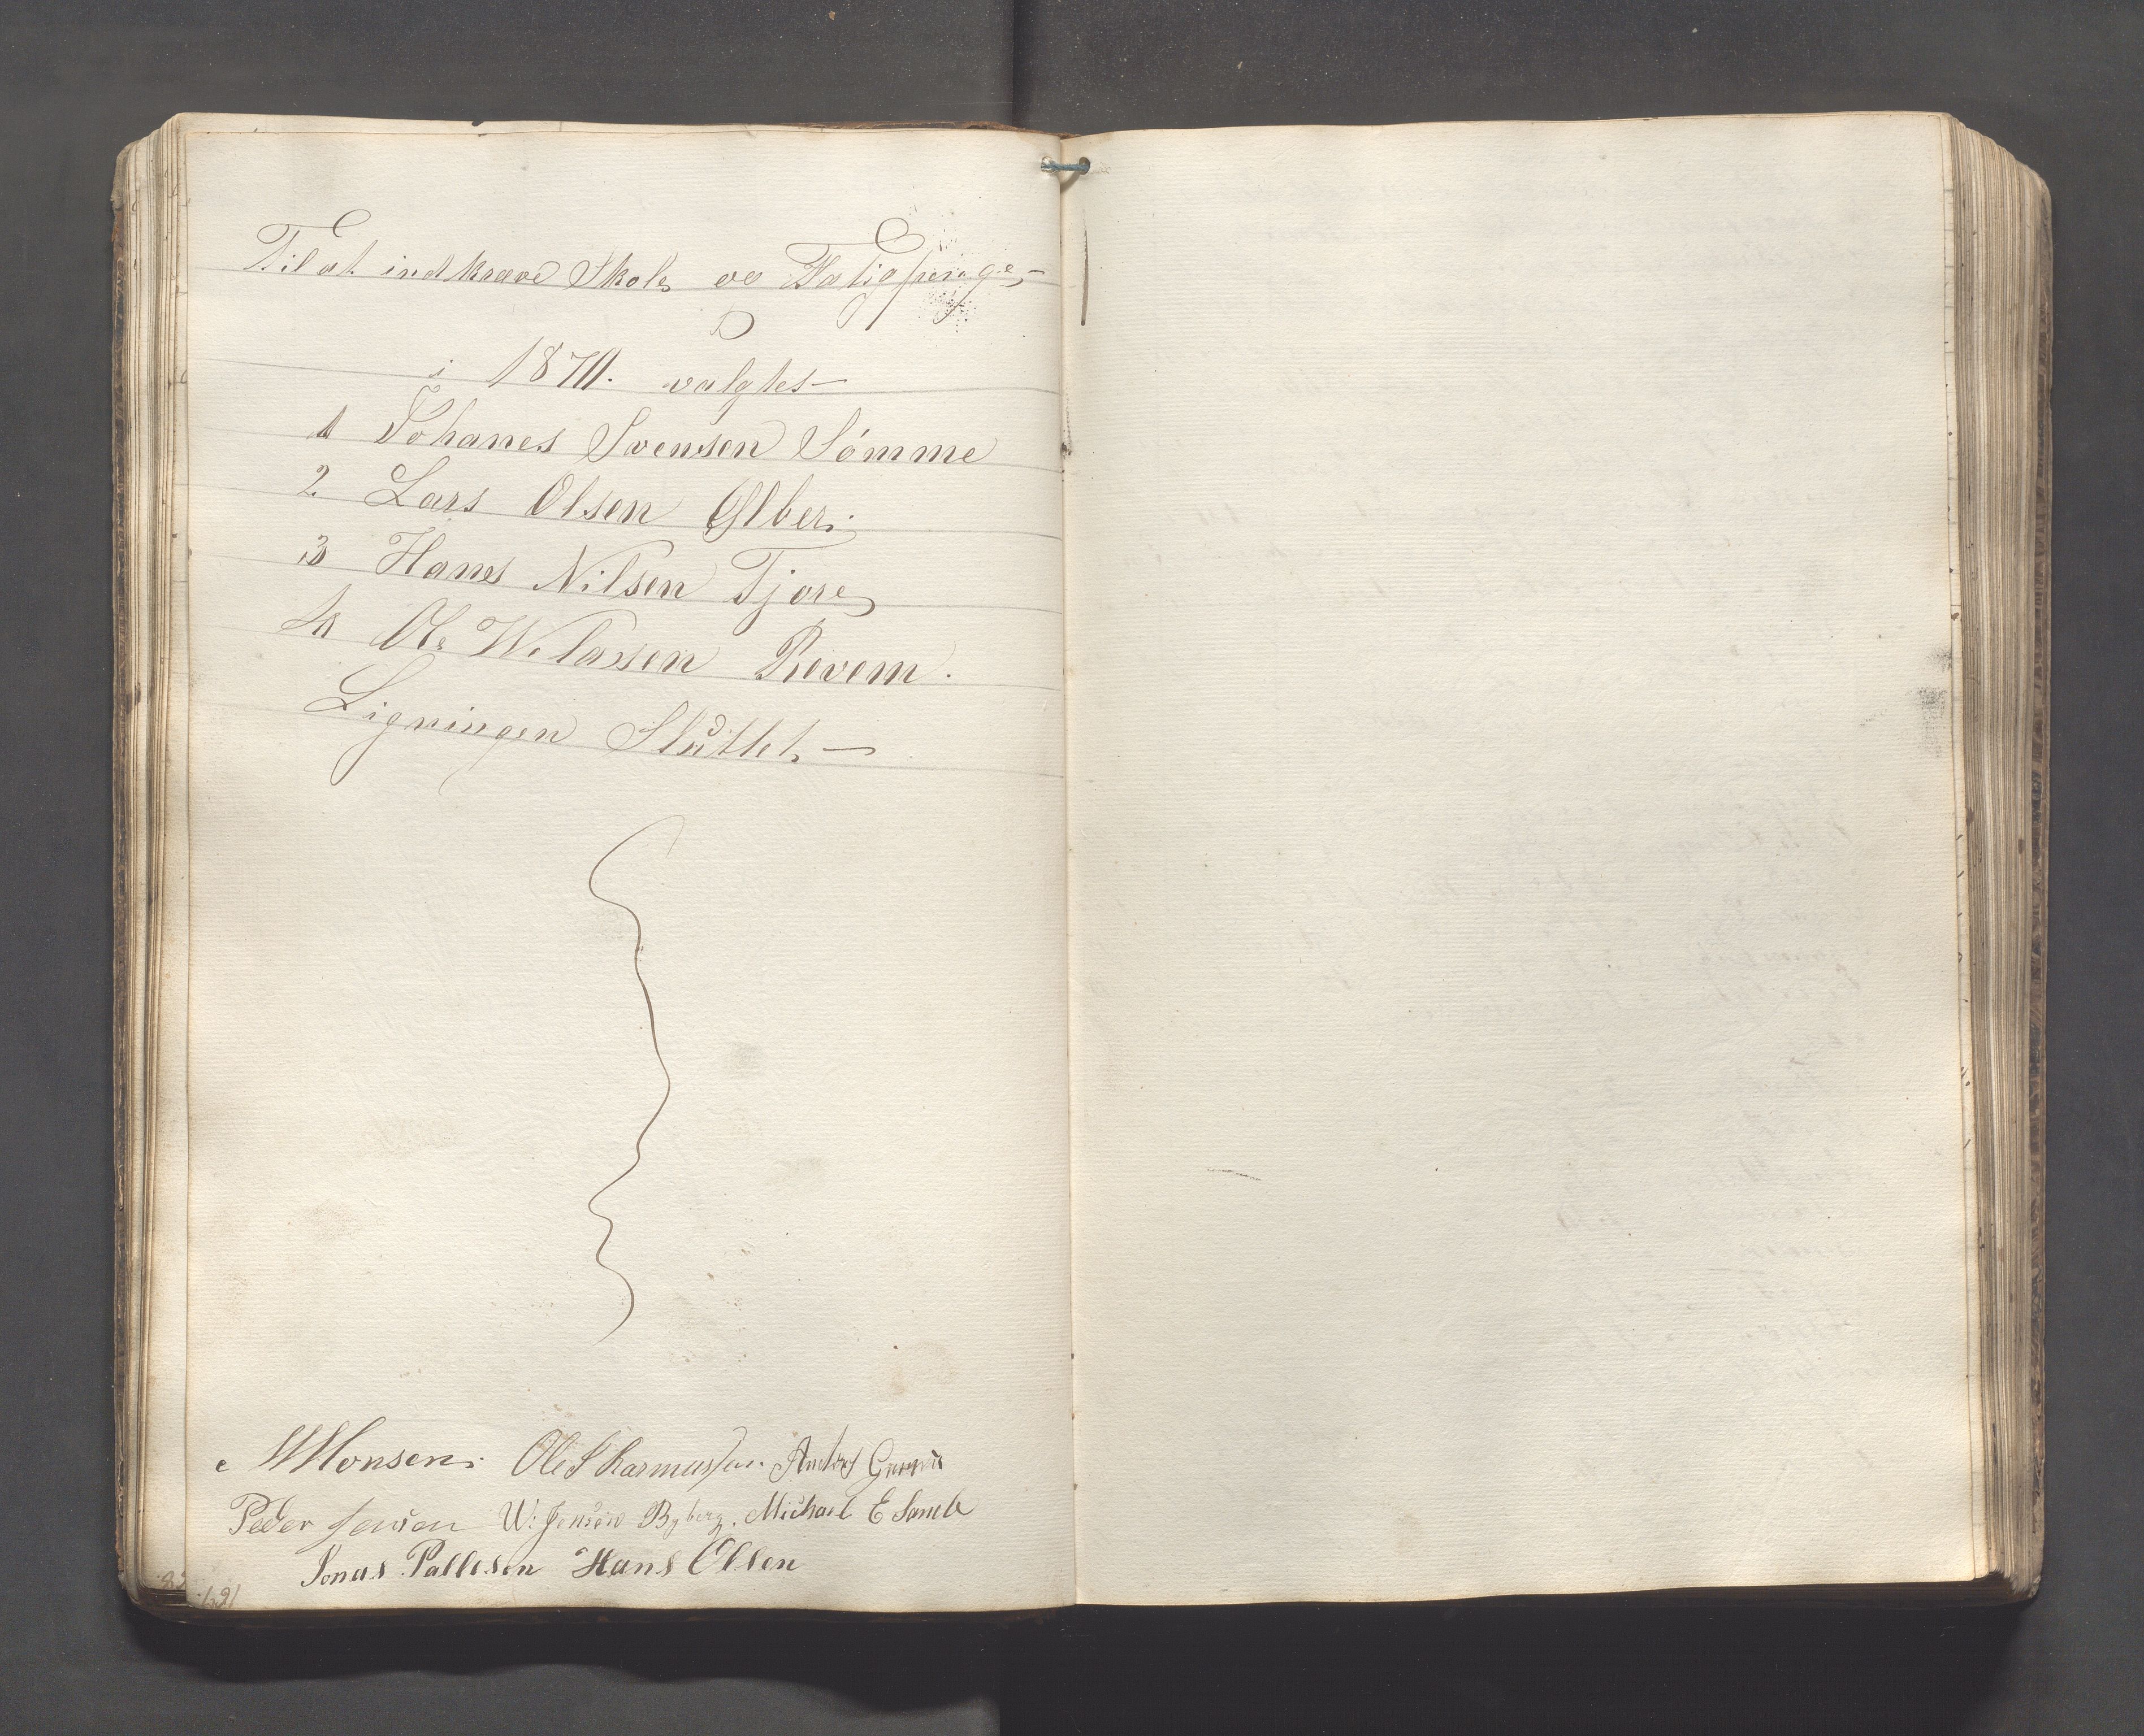 Til at indkræve Skole og Fatigpenge,—
i 1870. valgtes—
1 Johanes Svensen Sømme
2. Lars Olsen Ølber.
3 Hans Nilsen Tjore
4 Ole Welassen Revem.
Ligningen Sluttet. —
MMonsen. Ole S Rasmussen.
Peder Jensen W. Jensen Byberg. Michael E Sande
Jonas Pallesen Hans Olsen